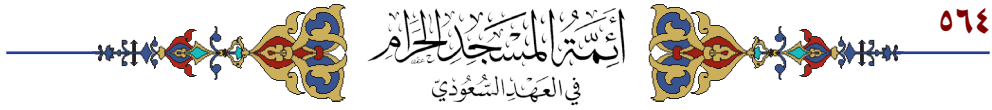 ٥٦٤
أئمة المسجد الحرام
في العهد السعودي